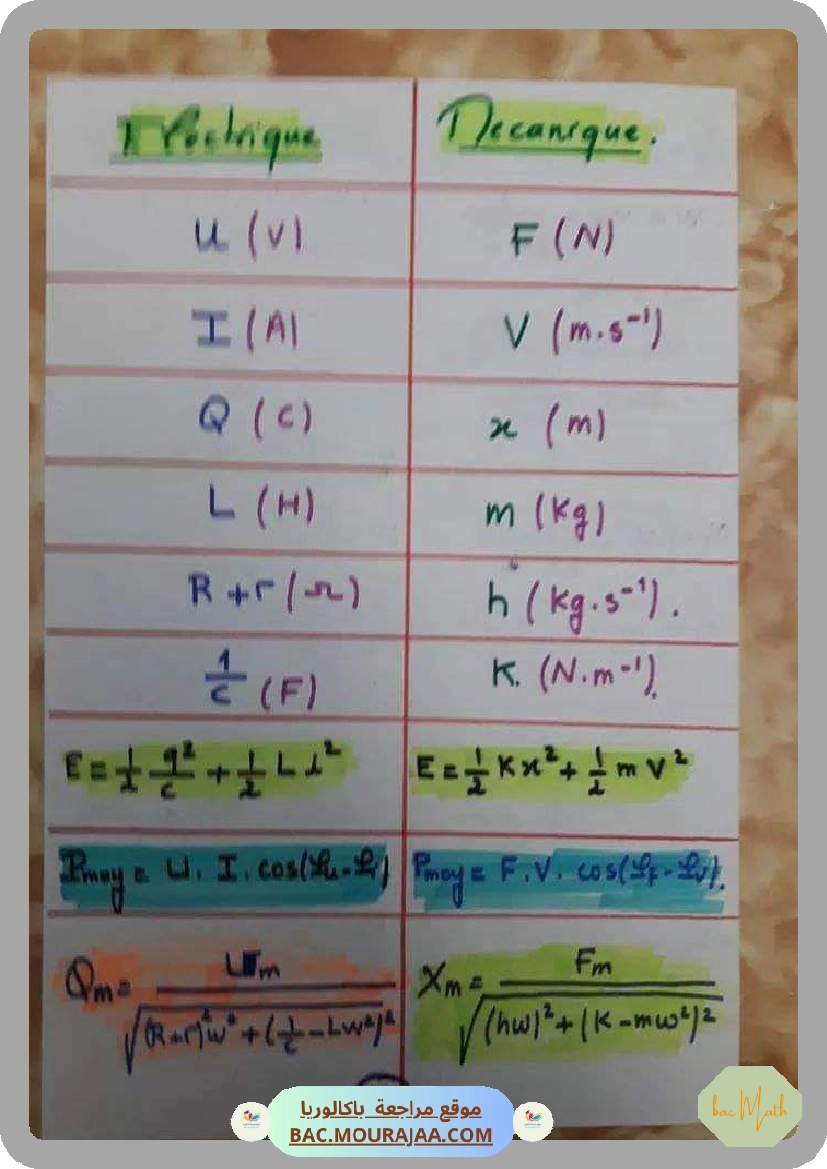 Electrique Mecanique.
U (V) F (N)
I (A) V (m.s⁻¹)
Q (C) x (m)
L (H) m (Kg)
R+r (Ω) h (Kg.s⁻¹).
1/C (F) K. (N.m⁻¹).
E = 1/2 q²/C + 1/2 L i² E = 1/2 K x² + 1/2 m V²
Pmoy = U. I. cos(φu-φi) Pmoy = F.V. cos(φF-φV).
Qm = Um / √((R+r)²w² + (1/C - Lw²)² Xm = Fm / √((hw)² + (K - mw²)²
موقع مراجعة باكالوريا
BAC.MOURAJAA.COM
bac Math